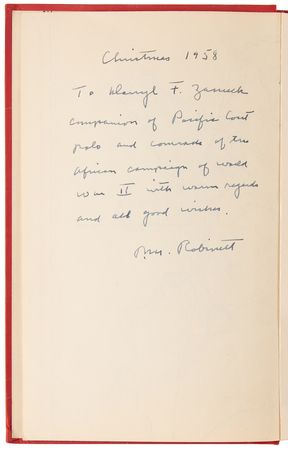 Christmas 1958
To Darryl F. Zanuck
companion of Pacific Coast
polo and comrade of the
African campaign of World
War II with warm regards
and all good wishes.
Robinett